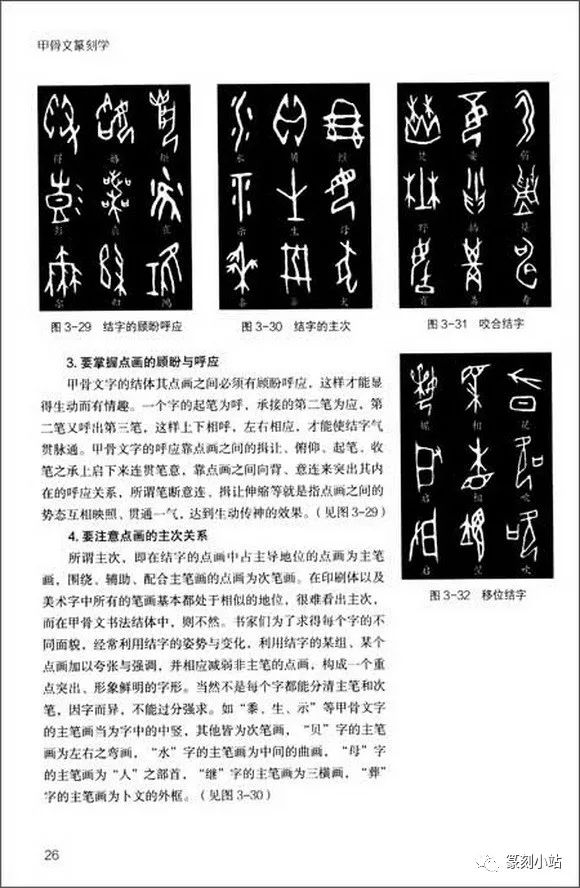 甲骨文篆刻学
图 3-29 结字的顾盼呼应
图 3-30 结字的主次
图 3-31 咬合结字
3. 要掌握点画的顾盼与呼应
甲骨文字的结体其点画之间必须有顾盼呼应，这样才能显
得生动而有情趣。一个字的起笔为呼，承接的第二笔为应，第
二笔又呼出第三笔，这样上下相呼，左右相应，才能使结字气
贯脉通。甲骨文字的呼应靠点画之间的揖让、俯仰、起笔、收
笔之承上启下来连贯笔意，靠点画之间向背、意连来突出其内
在的呼应关系，所谓笔断意连、揖让伸缩等就是指点画之间的
势态互相映照、贯通一气，达到生动传神的效果。（见图 3-29）
4. 要注意点画的主次关系
所谓主次，即在结字的点画中占主导地位的点画为主笔
画，围绕、辅助、配合主笔画的点画为次笔画。在印刷体以及
美术字中所有的笔画基本都处于相似的地位，很难看出主次，
而在甲骨文书法结体中，则不然。书家们为了求得每个字的不
同面貌，经常利用结字的姿势与变化，利用结字的某组、某个
点画加以夸张与强调，并相应减弱非主笔的点画，构成一个重
点突出、形象鲜明的字形。当然不是每个字都能分清主笔和次
笔，因字而异，不能过分强求。如“黍，生、示”等甲骨文字
的主笔画当为字中的中竖，其他皆为次笔画，“贝”字的主笔
画为左右之弯画，“水”字的主笔画为中间的曲画，“母”字
的主笔画为“人”之部首，“继”字的主笔画为三横画，“葬”
字的主笔画为卜文的外框。（见图 3-30）
图 3-32 移位结字
26
篆刻小站